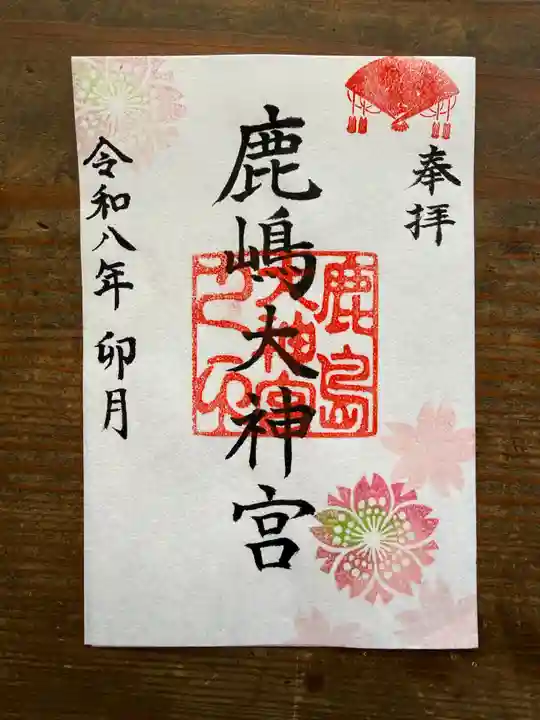 奉拝
鹿嶋大神宮
鹿島
大神宮
令和八年 卯月